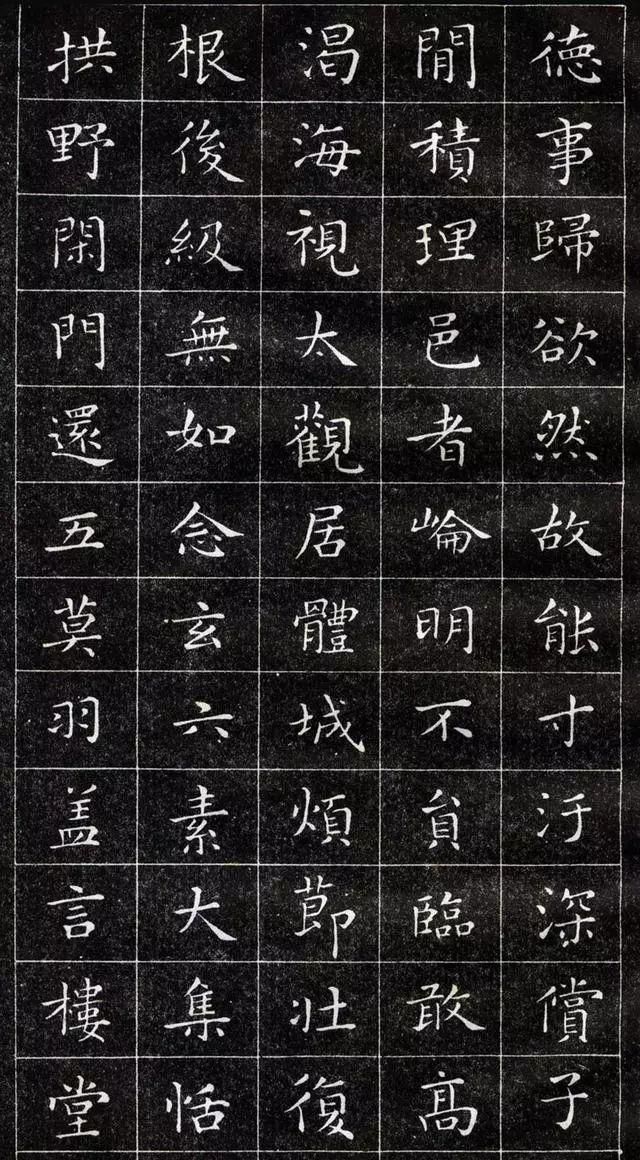 德事歸欲然故能寸汙深償子
閒積理邑者崘明不貟臨敢髙
渴海視太觀居體城煩莭壯復
根後級無如念玄六素大集恬
拱野閑門還五莫羽盖言樓堂